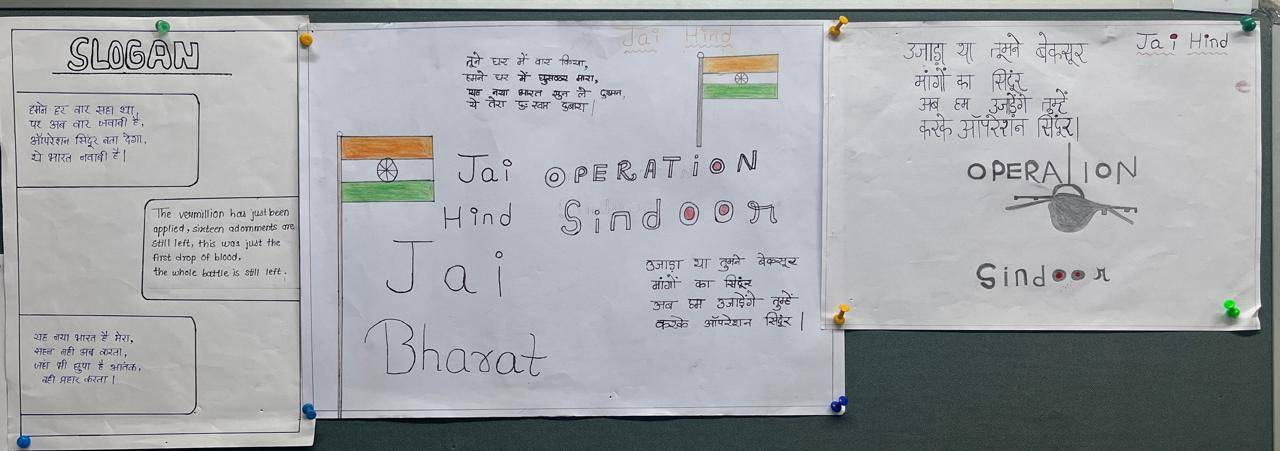 SLOGAN
हमने हर वार सहा था,
पर अब वार जवाबी है,
ऑपरेशन सिंदूर बता देगा,
ये भारत नवाबी है|
The vermillion has just been
applied, sixteen adornments are
still left, this was just the
first drop of blood,
the whole battle is still left.
यह नया भारत है मेरा,
सहन नही अब करता,
जहां भी छुपा है आतंक,
वही प्रहार करता|
Jai Hind
तूने घर में वार किया,
हमने घर में घुसकर मारा,
यह नया भारत सुन ले दुश्मन,
ये तेरा दुःस्वप्न दुबारा|
Jai
Hind
OPERATiON
Sindoor
Jai
Bharat
उजाड़ा था तुमने बेकसूर
मांगों का सिंदूर
अब हम उजाड़ेंगे तुम्हें
करके ऑपरेशन सिंदूर|
Jai Hind
उजाड़ा था तुमने बेकसूर
मांगों का सिंदूर
अब हम उजाड़ेंगे तुम्हें
करके ऑपरेशन सिंदूर|
OPERATION
Sindoor